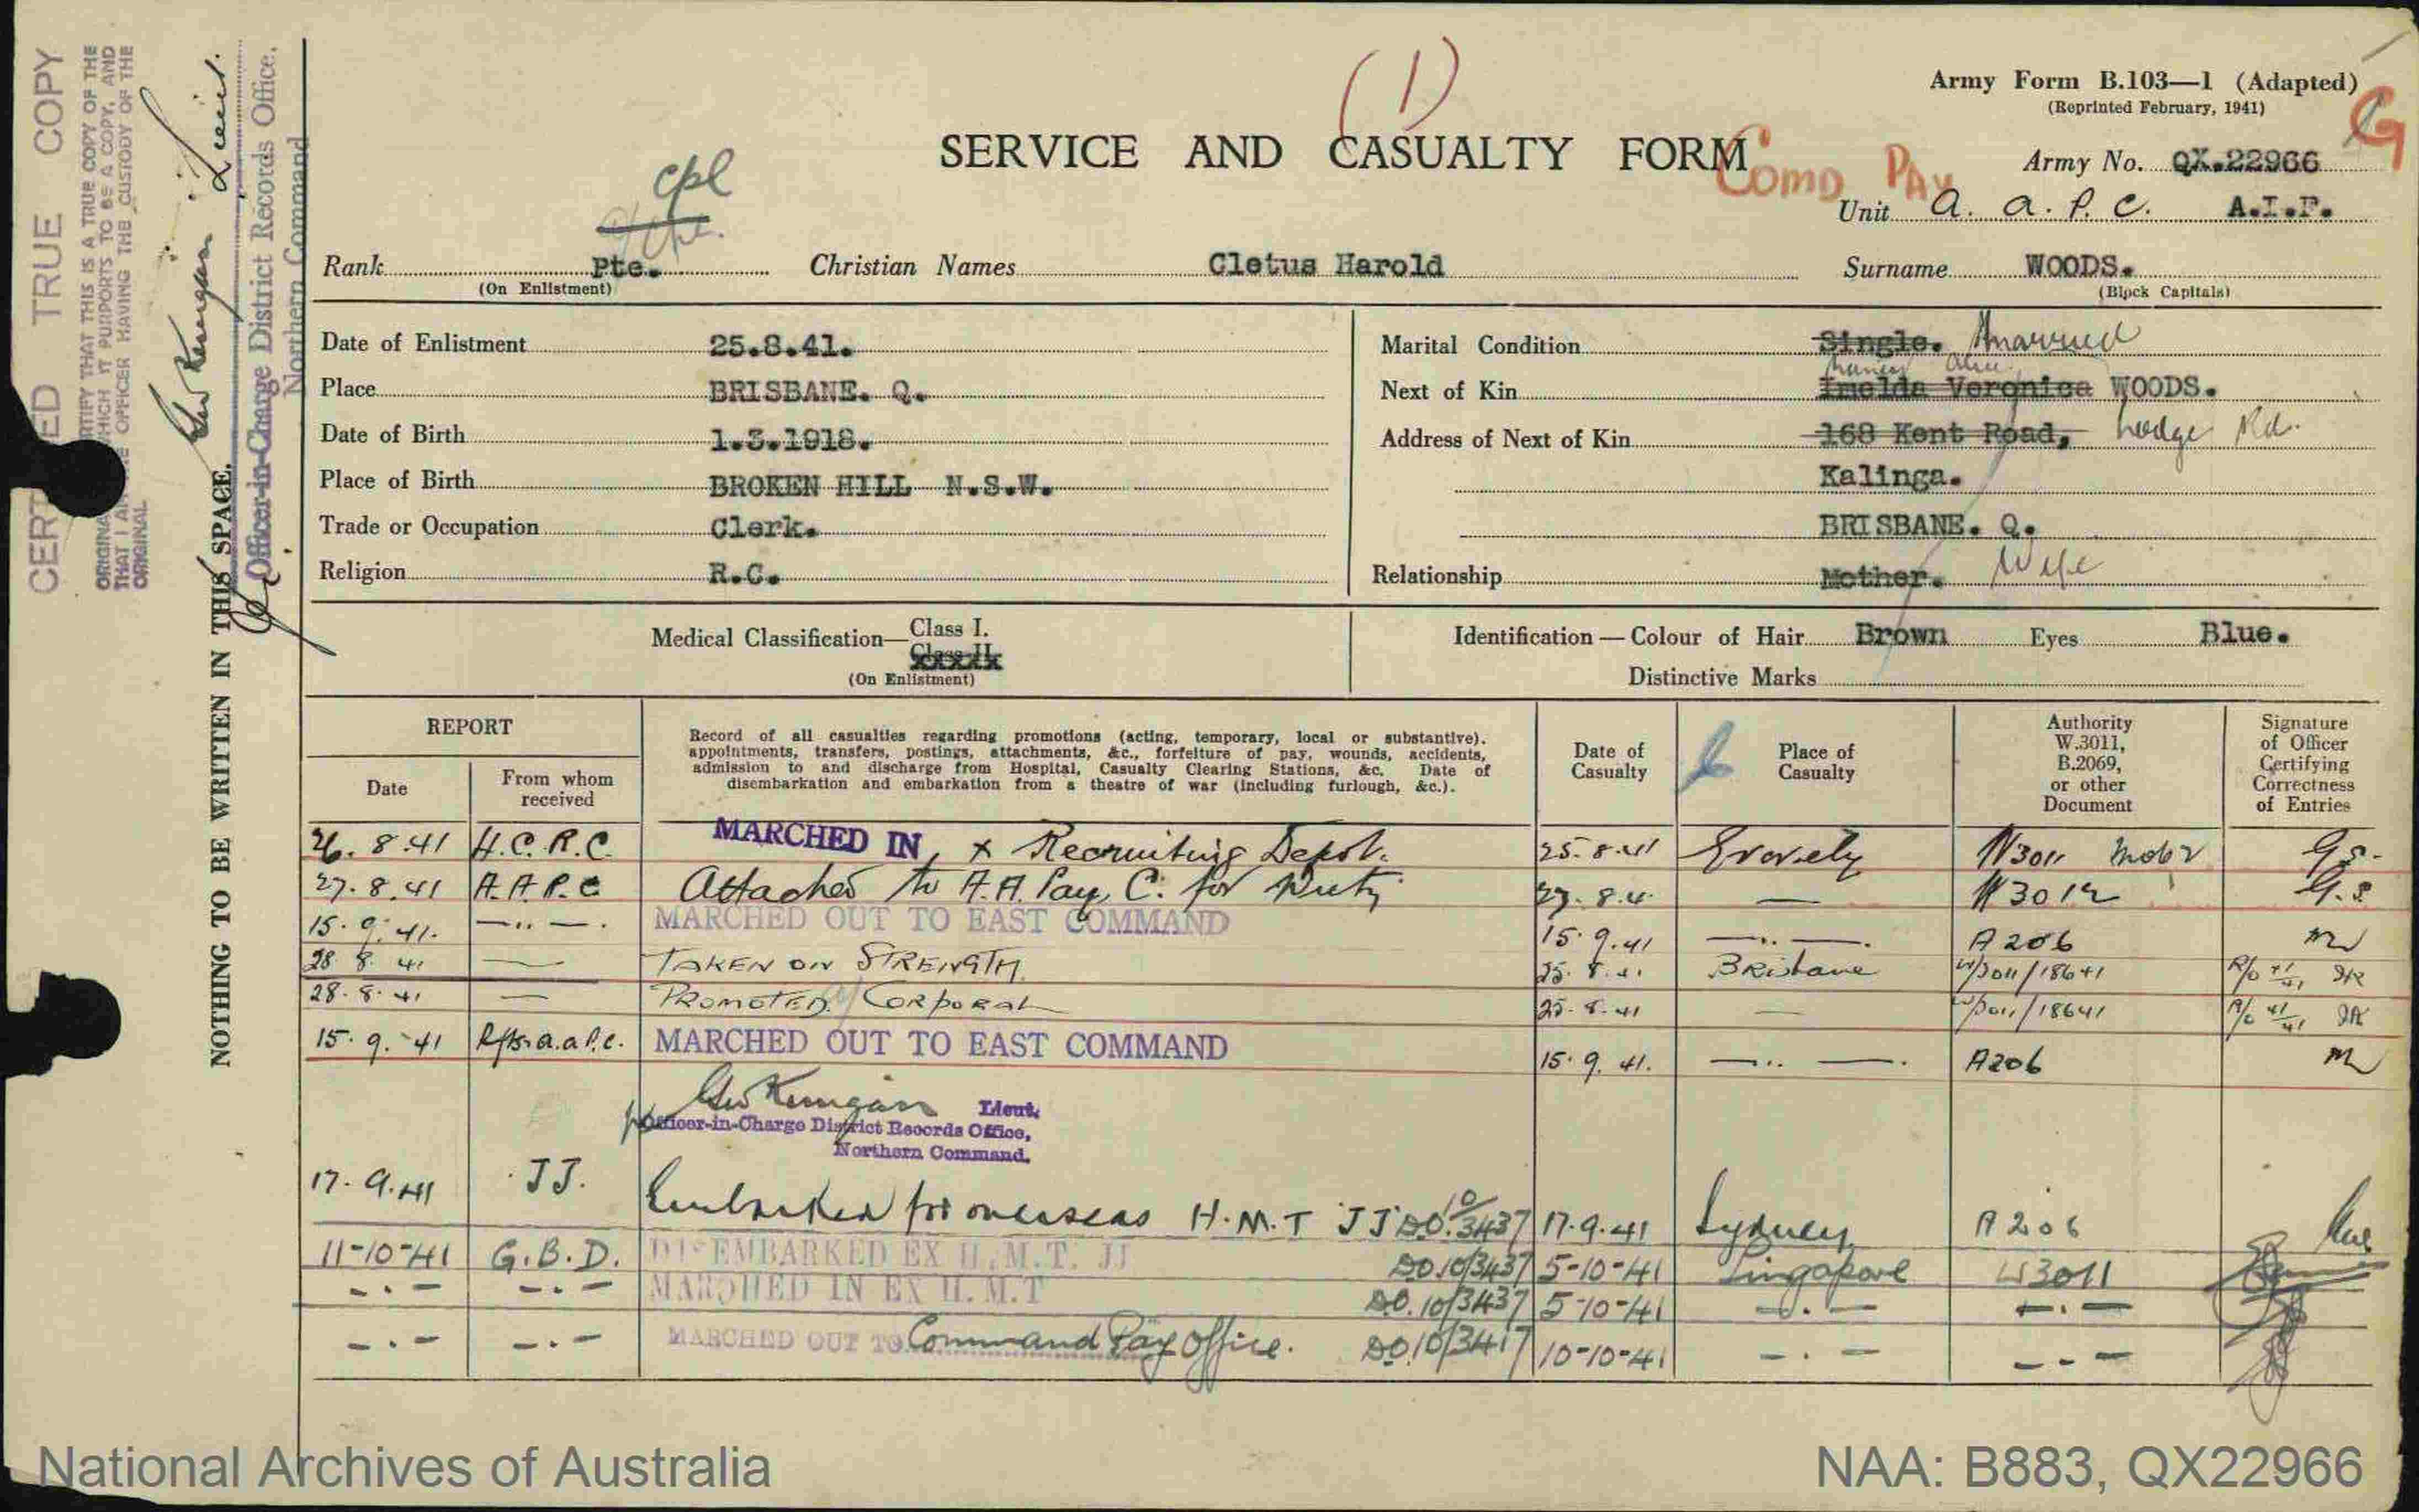 (1)
Army Form B.103—1 (Adapted)
(Reprinted February, 1941)
G
SERVICE AND CASUALTY FORM
Comd Pay
Army No. QX.22966
Unit A. A. P. C. A.I.F.
Cpl
Rank Pte. Christian Names Cletus Harold Surname WOODS.
(On Enlistment) (Block Capitals)
Date of Enlistment 25.8.41.
Place BRISBANE. Q.
Date of Birth 1.3.1918.
Place of Birth BROKEN HILL N.S.W.
Trade or Occupation Clerk.
Religion R.C.
Marital Condition Single. Married
Next of Kin Imelda Veronica WOODS.
Address of Next of Kin 168 Kent Road, Lodge Rd.
Kalinga.
BRISBANE. Q.
Relationship Mother. Wife
Medical Classification— Class I.
Class II.
(On Enlistment)
Identification — Colour of Hair Brown Eyes Blue.
Distinctive Marks
REPORT
Date
From whom received
Record of all casualties regarding promotions (acting, temporary, local or substantive).
appointments, transfers, postings, attachments, &c., forfeiture of pay, wounds, accidents,
admission to and discharge from Hospital, Casualty Clearing Stations, &c. Date of
disembarkation and embarkation from a theatre of war (including furlough, &c.).
Date of Casualty
Place of Casualty
Authority W.3011, B.2069, or other Document
Signature of Officer Certifying Correctness of Entries
26.8.41 H.C.R.C. MARCHED IN, x Recruiting Depot. 25.8.41 Gravely W3011
27.8.41 A.A.P.C Attached to A.A. Pay C. for Duty 27.8.4 — W3012 G.S
15.9.41. —..—. MARCHED OUT TO EAST COMMAND 15.9.41 —..—. A206
28.8.41 — TAKEN ON STRENGTH 25.8.41 Brisbane W3011/18641
28.8.41 — PROMOTED A/ CORPORAL 25.8.41 — W3011/18641
15.9.41 R/o a.a.P.C. MARCHED OUT TO EAST COMMAND 15.9.41. —..—. A206
Lieut.
Officer-in-Charge District Records Office,
Northern Command.
17.9.41 JJ. Embarked for overseas H.M.T JJ DO.10/3437 17.9.41 Sydney A206
11-10-41 G.B.D. DISEMBARKED EX H.M.T. JJ DO.10/3437 5-10-41 Singapore W3011
-.- -.- MARCHED IN EX H.M.T DO.10/3437 5-10-41 -.- -.-
-.- -.- MARCHED OUT TO Command Pay Office. DO.10/3417 10-10-41 -.- -.-
CERTIFIED TRUE COPY
CERTIFY THAT THIS IS A TRUE COPY OF THE
ORIGINAL WHICH IT PURPORTS TO BE A COPY, AND
THAT I AM THE OFFICER HAVING THE CUSTODY OF THE
ORIGINAL
Lieut.
Officer-in-Charge District Records Office.
Northern Command
NOTHING TO BE WRITTEN IN THIS SPACE.
National Archives of Australia
NAA: B883, QX22966